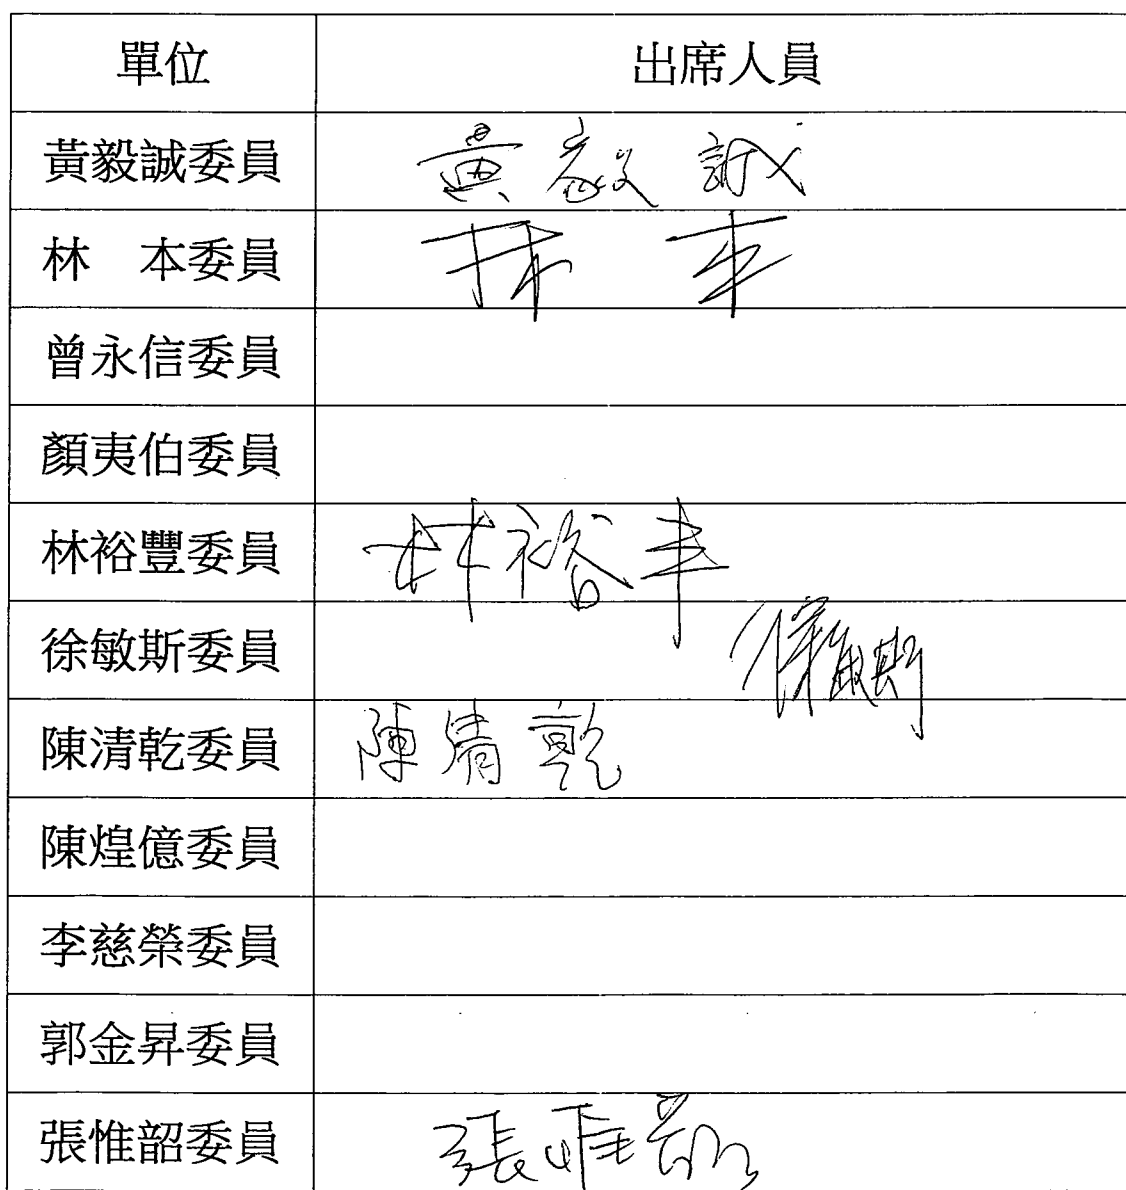 單位 出席人員
黃毅誠委員 黃毅誠
林 本委員 林 本
曾永信委員
顏夷伯委員
林裕豐委員 林裕丰
徐敏斯委員 徐敏斯
陳清乾委員 陳清乾
陳煌億委員
李慈榮委員
郭金昇委員
張惟韶委員 張惟韶